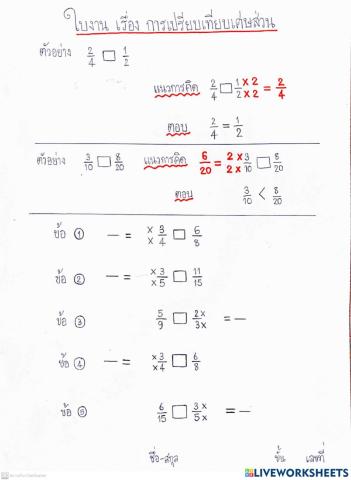 ใบงาน เรื่อง การเปรียบเทียบเศษส่วน
ตัวอย่าง 2/4 □ 1/2
แนวการคิด 2/4 □ 1/2 ×2 ×2 = 2/4
ตอบ 2/4 = 1/2
ตัวอย่าง 3/10 □ 8/20 แนวการคิด 6/20 = 2×3 2×10 □ 8/20
ตอบ 3/10 < 8/20
ข้อ ① — = ×3 ×4 □ 6/8
ข้อ ② — = ×3 ×5 □ 11/15
ข้อ ③ 5/9 □ 2× 3× = —
ข้อ ④ — = ×3 ×4 □ 6/8
ข้อ ⑤ 6/15 □ 3× 5× = —
ชื่อ-สกุล ชั้น เลขที่
LIVEWORKSHEETS